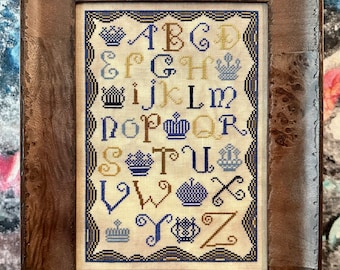 A B C D
E f G H
i j K L m
n o P Q R
S T U
V W X
Y Z